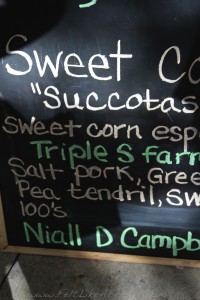 Sweet Co
"Succotas
Sweet corn esp
Triple S farm
Salt pork, Gree
Pea tendril, Sw
100's
Niall D Campb